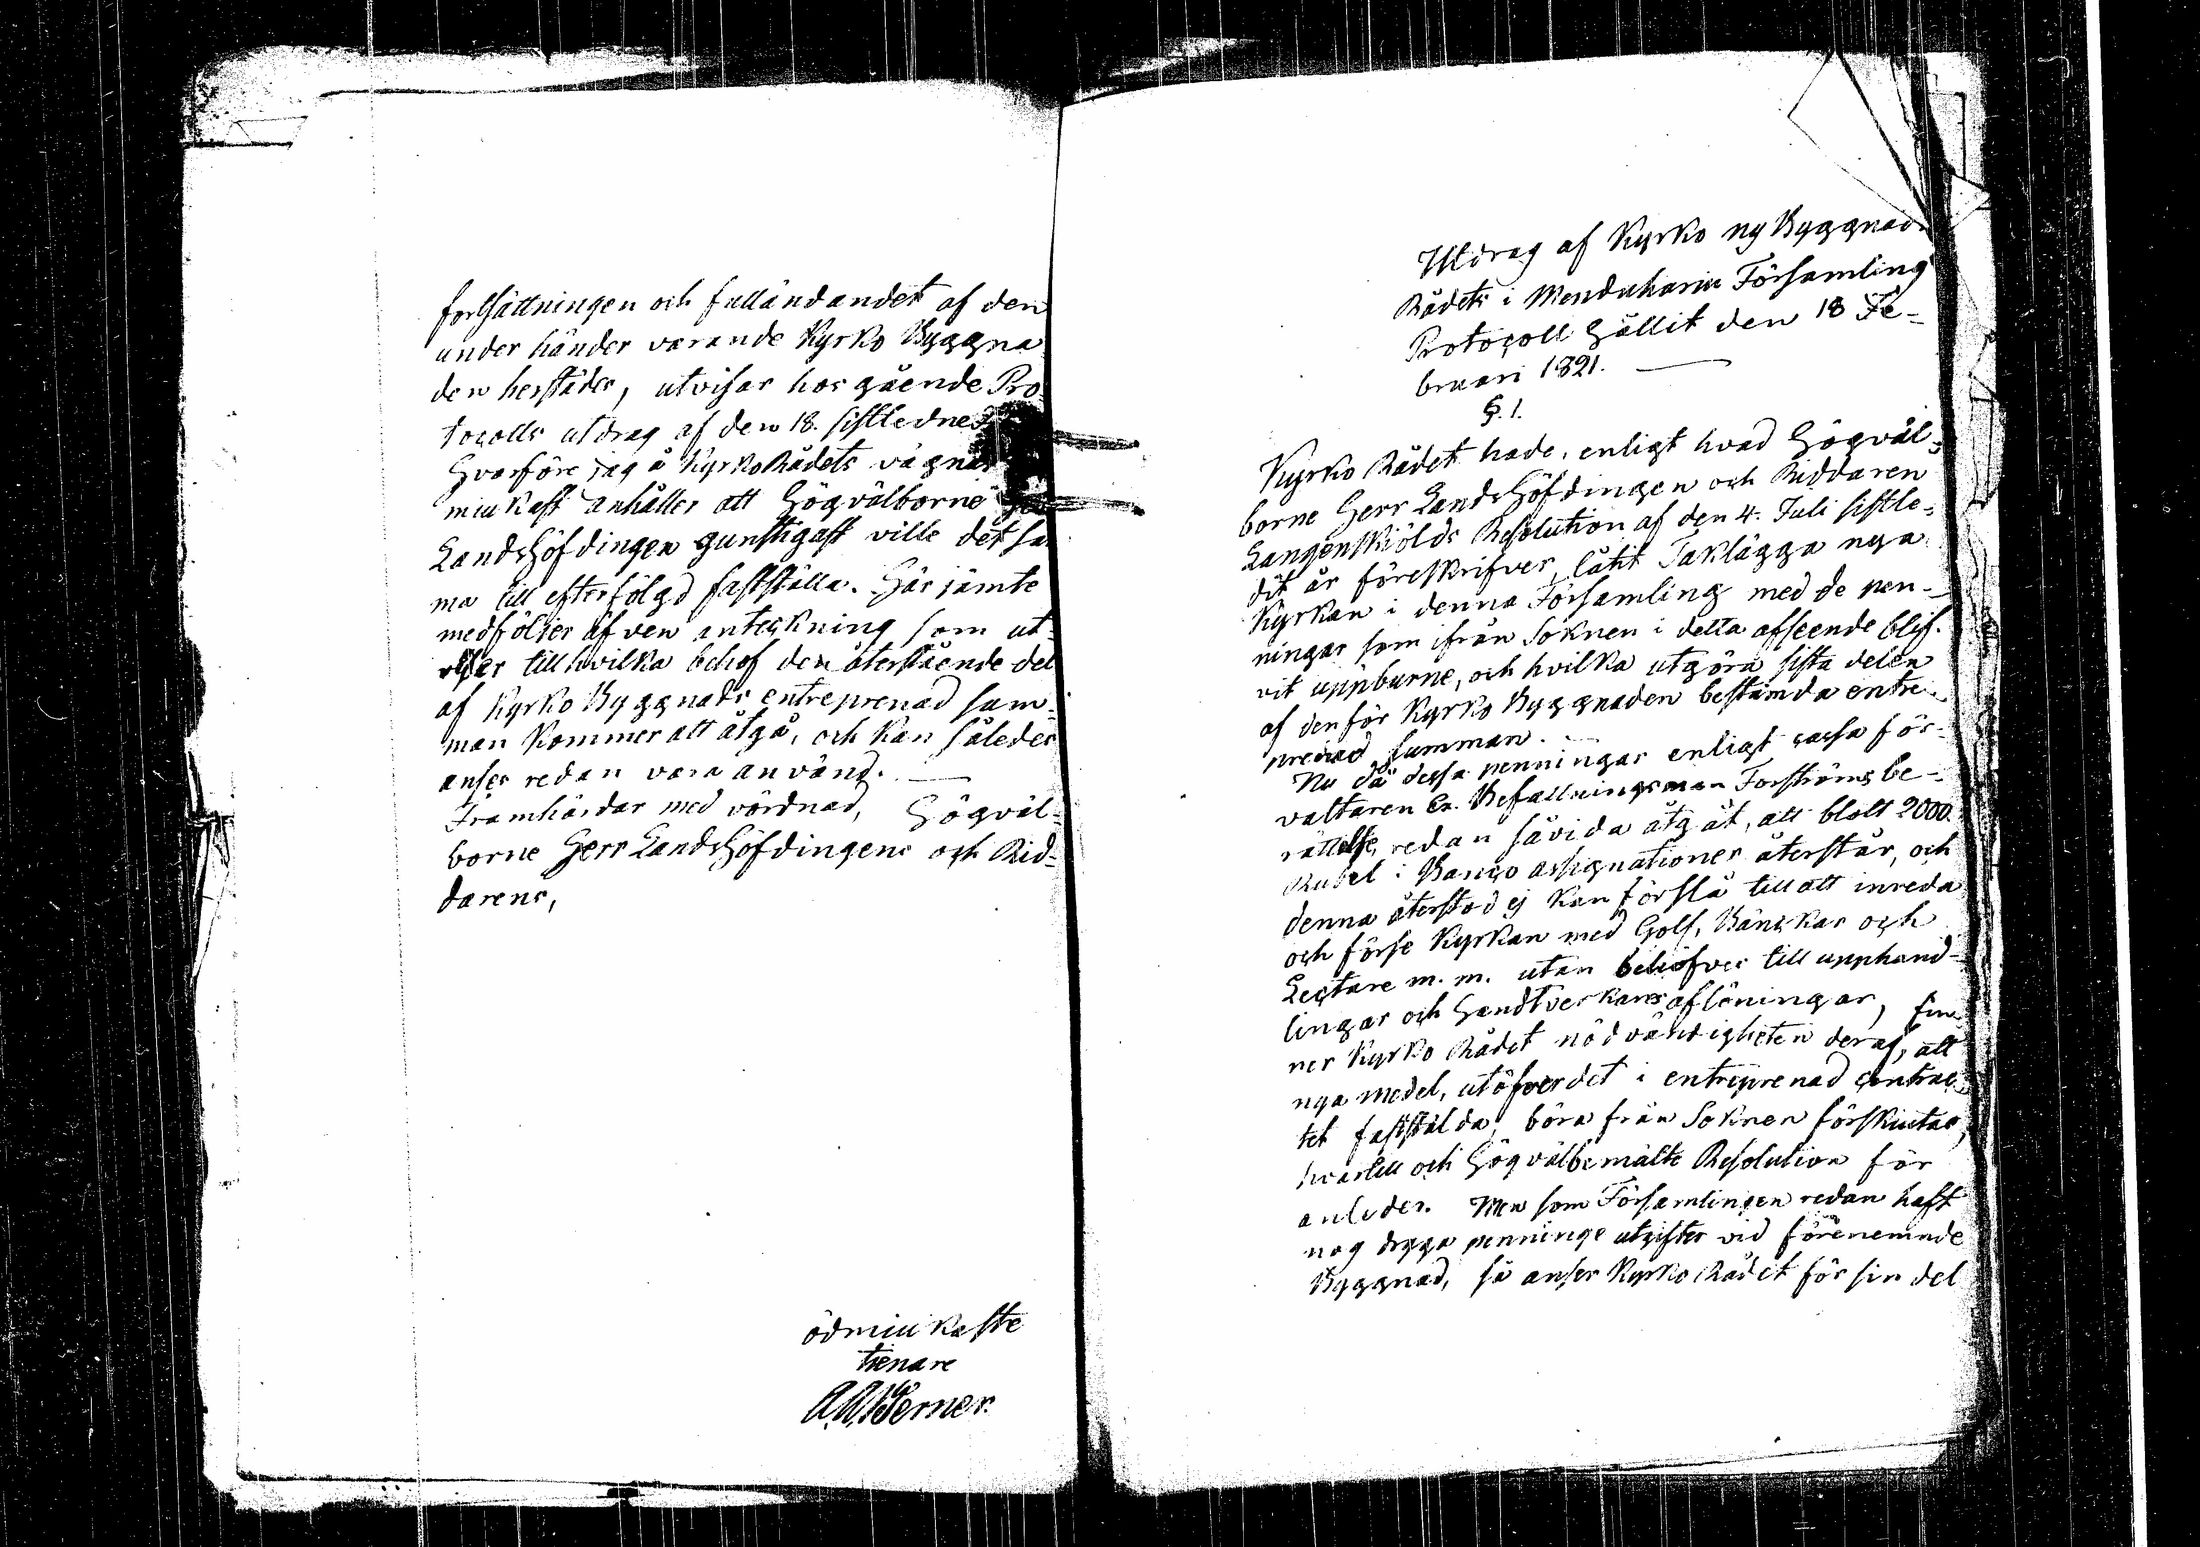 fortsättningen och fulländandet af den
under händer varande Kyrko Byggna
den herstädes, utvisar hos gående Pro
tocolls utdrag af den 18. sistledne
Hvarföre jag å KyrkoRådets vägnar
miukast anhåller att Högvälborne
Landshöfdingen gunstigast ville det sa
ma till efterfölgd fastställa. Här jämte
medföljer äfven anteckning som ut
viser till hvilka behof den återstående del
af Kyrko Byggnads entreprenad sum-
man kommer att åtgå, och kan således
anses redan vara använd. —
Framhärdar med vördnad, Högväl-
borne Herr Landshöfdingens och Rid-
darens,
ödmiukaste
tienare
Utdrag af Kyrko ny Byggnads
Rådets i Menduharju Församling
Protocoll hållit den 18 Fe-
bruari 1821. —
§. 1.
Kyrko Rådet hade, enligt hvad Högväl-
borne Herr Landshöfdingen och Riddaren
Langenskiölds Resolution af den 4. Juli sistle-
dit år föreskrifver, låtit Taklägga nya
Kyrkan i denna Församling med de pen-
ningar som ifrån Soknen i detta afseende blif-
vit uppburne, och hvilka utgöra sista delen
af den för Kyrko Byggnaden bestämda entre-
prenad summan. —
Nu då dessa penningar enligt cassa för-
valtaren Befallningsman Forströms be-
rättelse, redan såvida åtgåt, att blott 2000
Rubel i Banco assignationer återstår, och
denna återstod ej kan förslå till att inreda
och förse Kyrkan med Golf, Bänckar och
Lectare m. m. utan behöfves till upphand-
lingar och Handtverkares aflöningar, fin-
ner Kyrko Rådet nödvändigheten deraf, att
nya medel, utöfver det i entreprenad contrac-
tet faststälda, böra från Soknen förskiutas,
hvartill och Högvälbemälte Resolution för
anleder. Men som Församlingen redan haft
nog dryga penninge utgifter vid förenemnde
Byggnad, så anser Kyrko Rådet för sin del